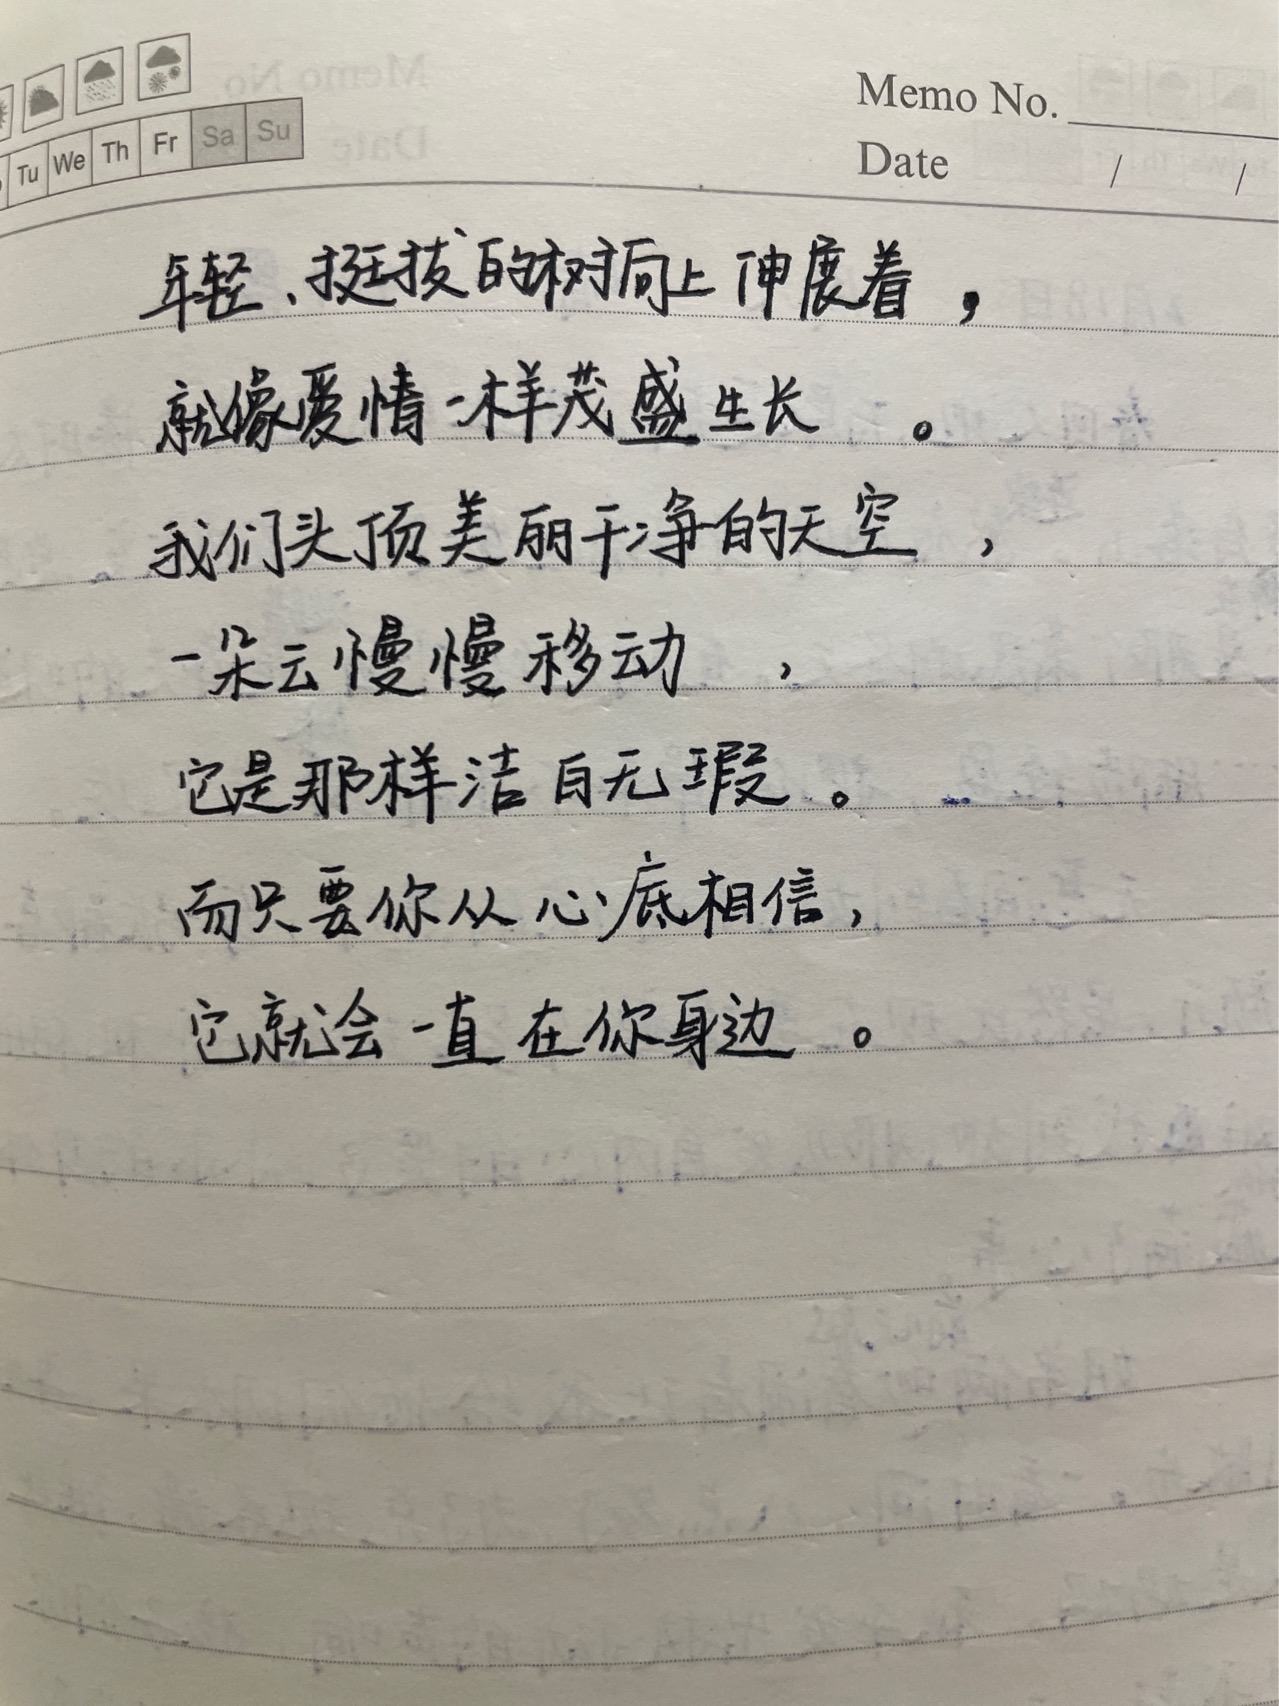 Memo No.
Date / /
Tu We Th Fr Sa Su
年轻、挺拔的树向上伸展着，
就像爱情一样茂盛生长。
我们头顶美丽干净的天空，
一朵云慢慢移动，
它是那样洁白无瑕。
而只要你从心底相信，
它就会一直在你身边。